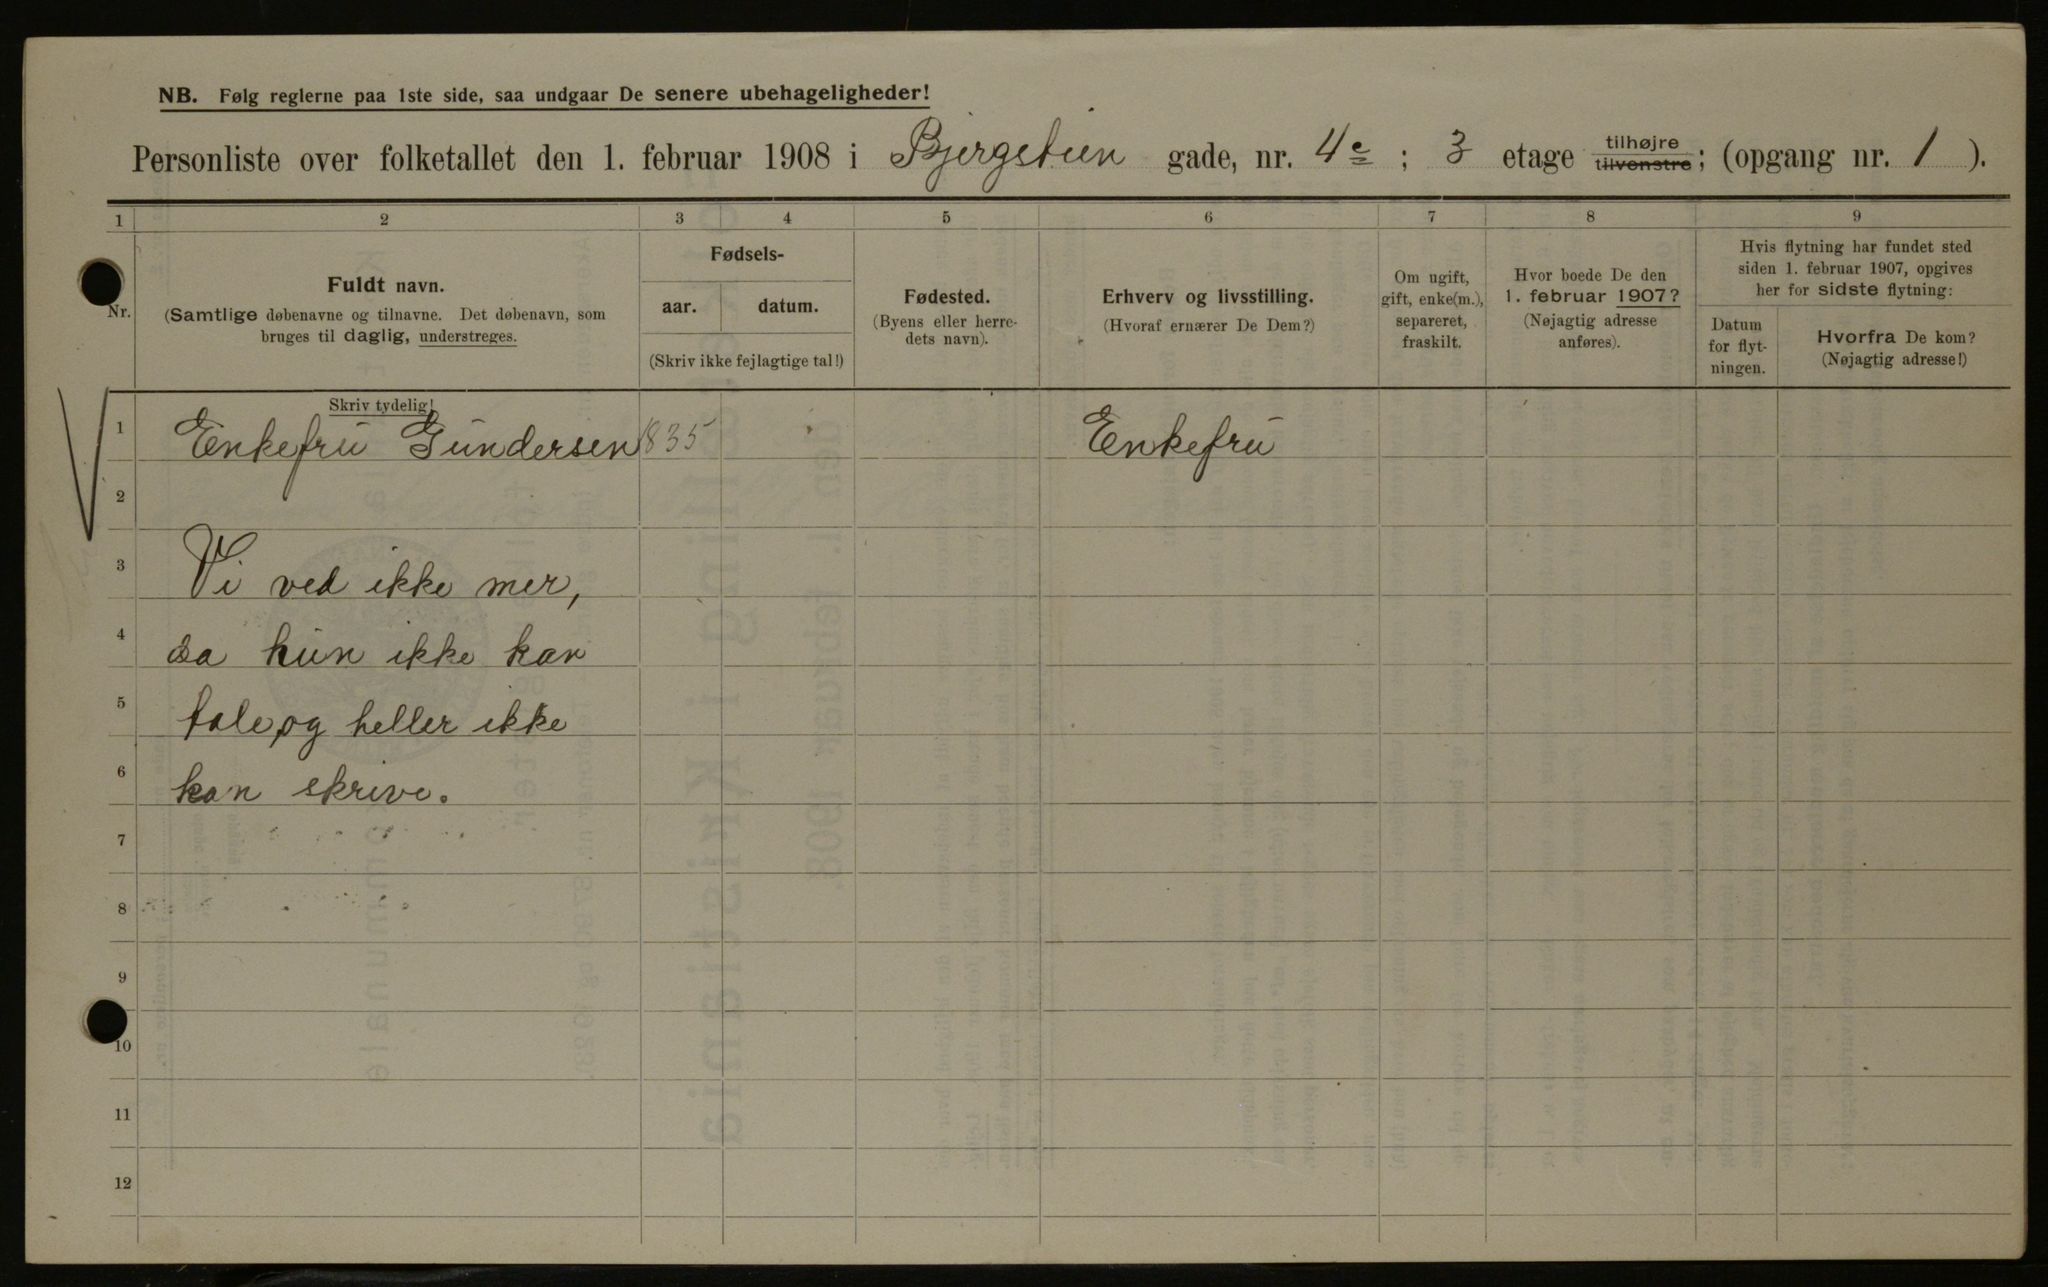 NB. Følg reglerne paa 1ste side, saa undgaar De senere ubehageligheder!
Personliste over folketallet den 1. februar 1908 i Bjergstien gade, nr. 4c; 3 etage tilhøjre tilvenstre; (opgang nr. 1).
1 2 3 4 5 6 7 8 9
Nr.
Fuldt navn.
(Samtlige døbenavne og tilnavne. Det døbenavn, som
bruges til daglig, understreges.
Fødsels-
aar. datum.
(Skriv ikke fejlagtige tal!)
Fødested.
(Byens eller herre-
dets navn).
Erhverv og livsstilling.
(Hvoraf ernærer De Dem?)
Om ugift,
gift, enke(m.),
separeret,
fraskilt.
Hvor boede De den
1. februar 1907?
(Nøjagtig adresse
anføres).
Hvis flytning har fundet sted
siden 1. februar 1907, opgives
her for sidste flytning:
Datum
for flyt-
ningen.
Hvorfra De kom?
(Nøjagtig adresse!)
Skriv tydelig!
1 Enkefru Gundersen 1835 Enkefru
2
3 Vi ved ikke mer,
4 da hun ikke kan
5 tale, og heller ikke
6 kan skrive.
7
8
9
10
11
12